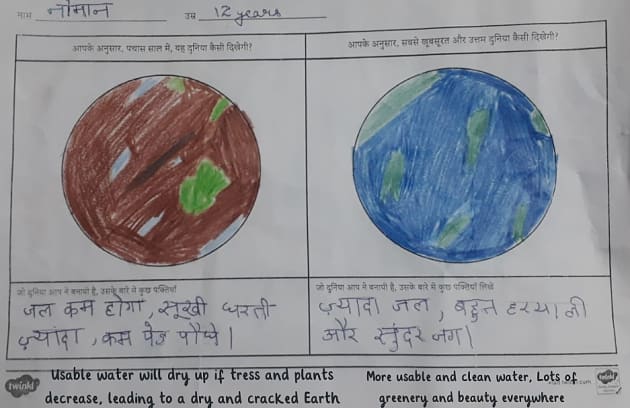 नाम नोमान उम्र 12 years
आपके अनुसार, पचास साल में, यह दुनिया कैसी दिखेगी?
आपके अनुसार, सबसे खूबसूरत और उत्तम दुनिया कैसी दिखेगी?
जो दुनिया आप ने बनायी है, उसके बारे में कुछ पंक्तियाँ
जल कम होगा, सूखी धरती
ज़्यादा, कम पेड़ पौधे।
जो दुनिया आप ने बनायी है, उसके बारे में कुछ पंक्तियाँ लिखें
ज़्यादा जल, बहुत हरयाली
और सुंदर जग।
twinkl
Usable water will dry up if tress and plants
decrease, leading to a dry and cracked Earth
More usable and clean water, Lots of
greenery and beauty everywhere
twinkl